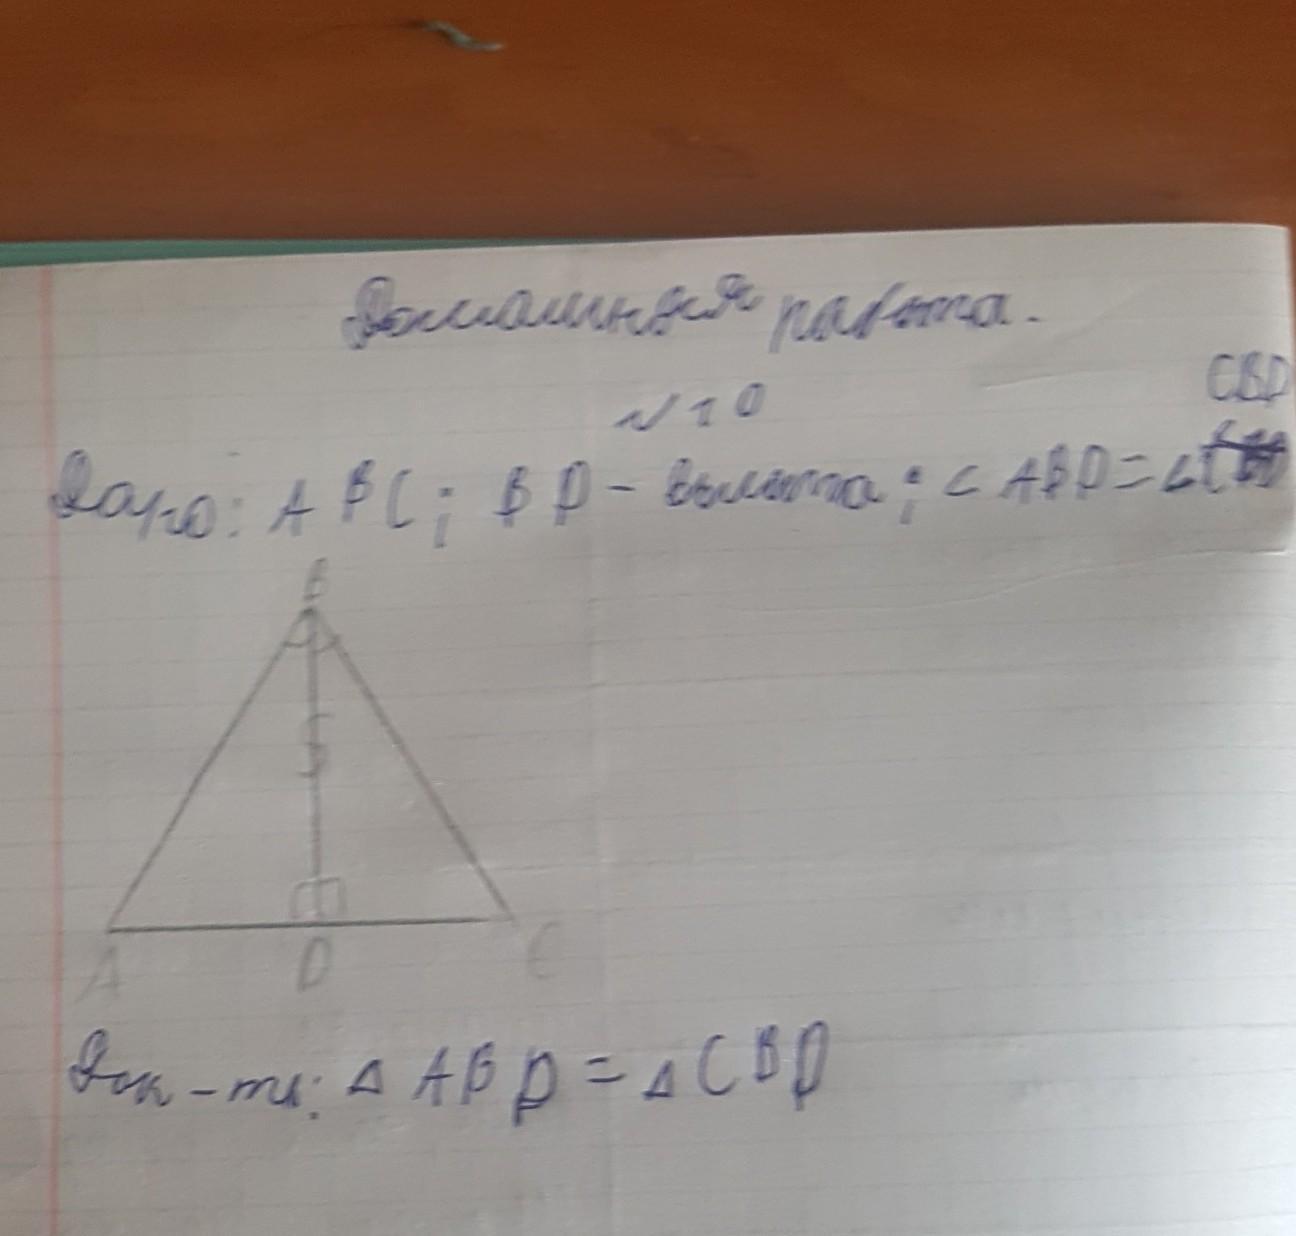 Домашняя работа.
№10
CBD
Дано: ABC; BD - высота; ∠ABD=∠
B
A D C
Док-ть: △ABD=△CBD